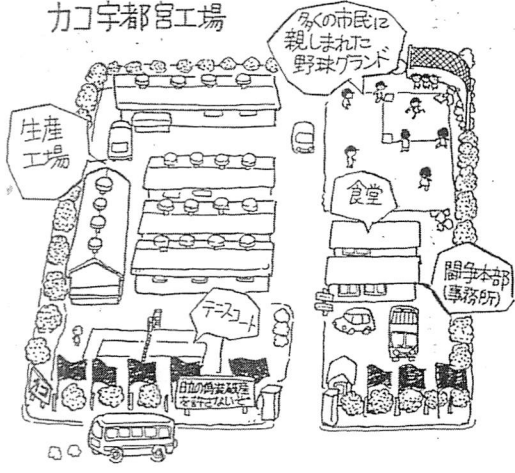 カコ宇都宮工場
多くの市民に
親しまれた
野球グランド
生産
工場
食堂
闘争本部
(事務所)
テニスコート
日立の偽装破産
を許さないぞ